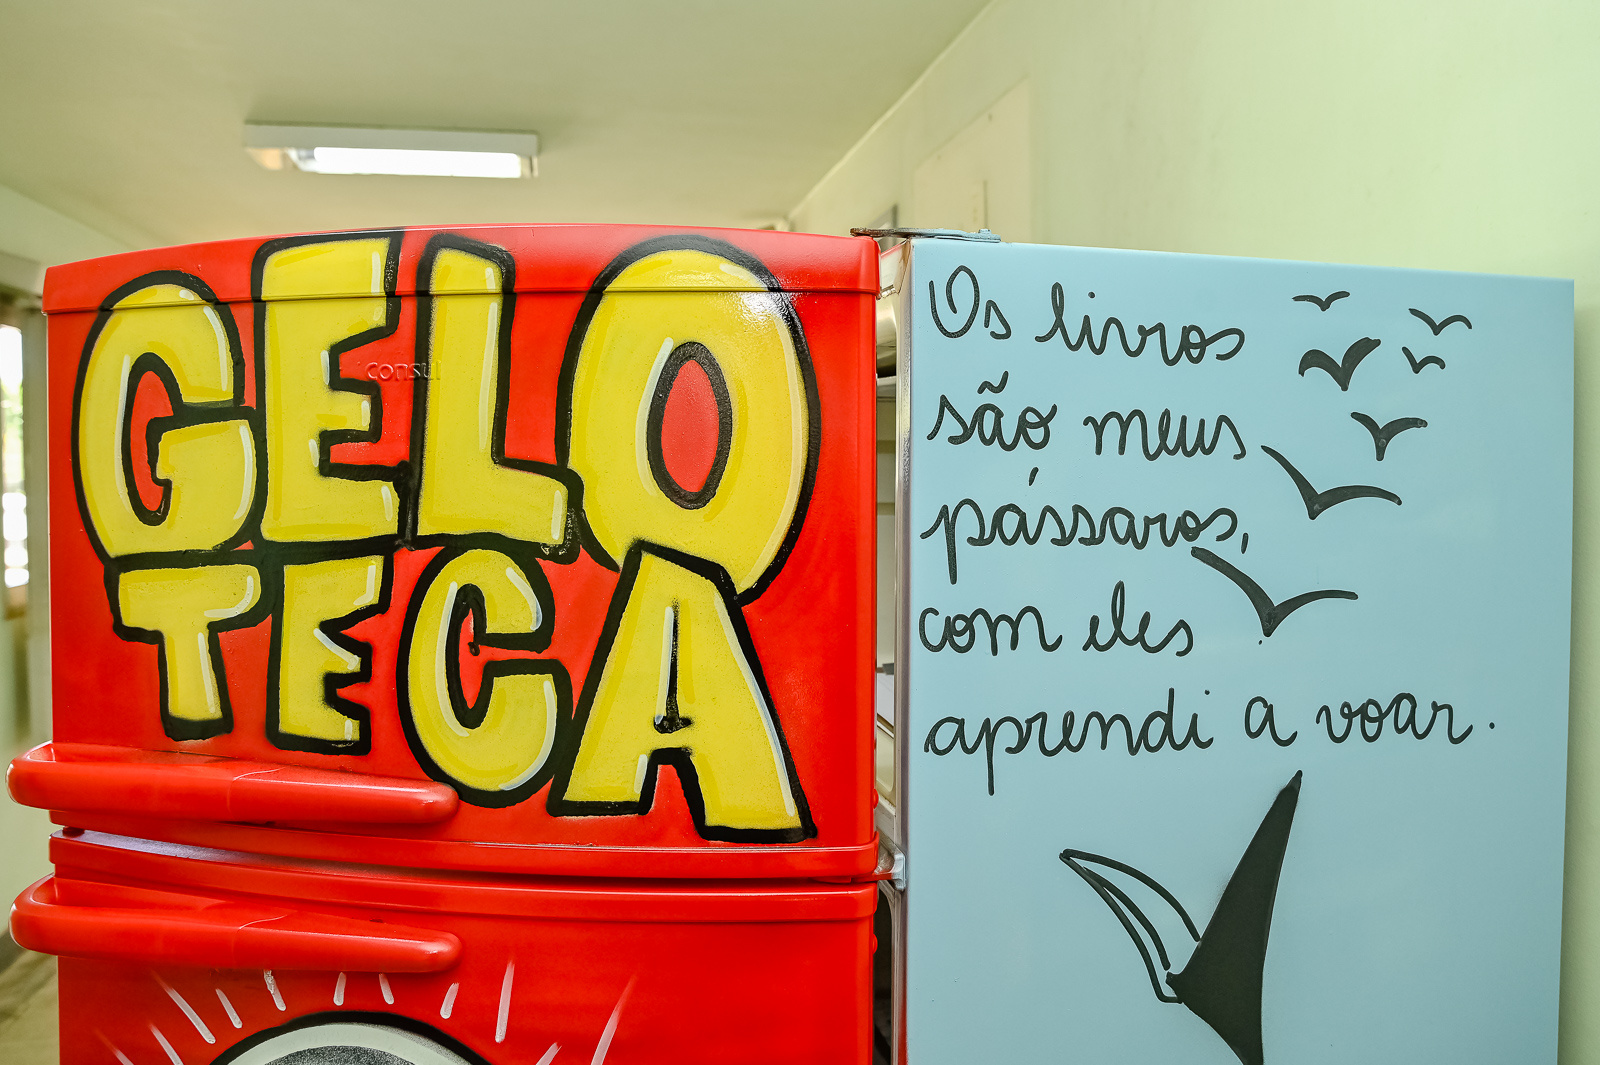 GELO
consul
TECA
Os livros
são meus
pássaros,
com eles
aprendi a voar.